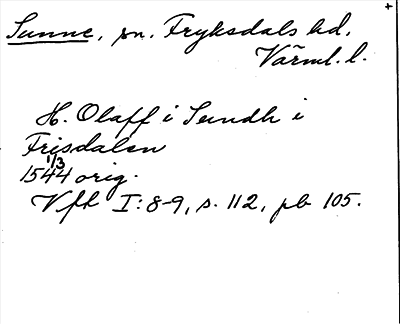 Sunne, sn. Fryksdals hd.
Värml. l.
H. Olaff i Sundh i
Frisdalen
1544 1/3 orig.
Vfh I:8-9, s. 112, pb 105.